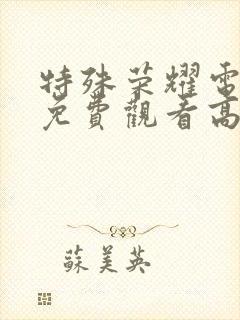 特殊荣耀電
免費觀看高
蘇美英